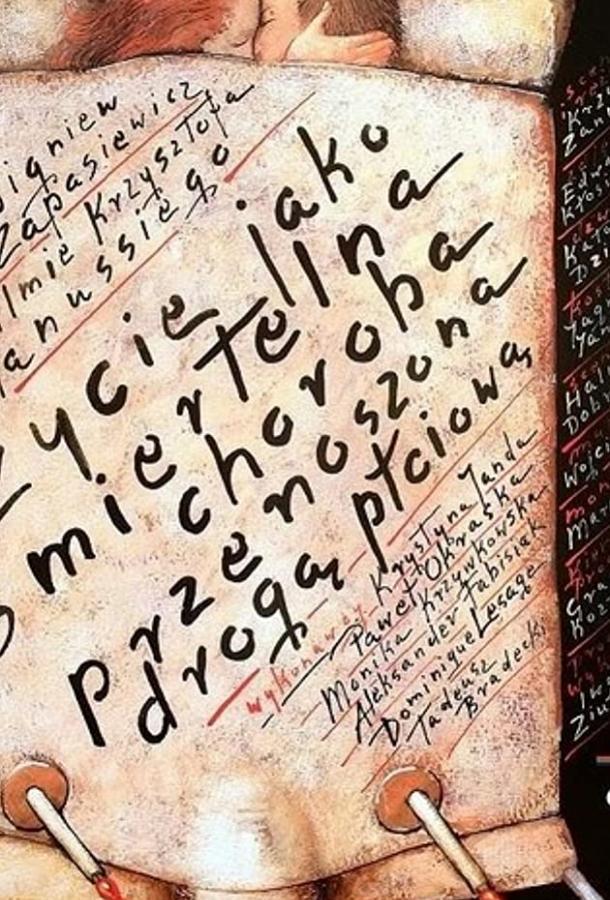 igniew
Zapasiewicz
ilmie Krzysztofa
anussiego
życie jako
śmiertelna
choroba
przenoszona
drogą płciową
wykonawcy Krystyna Janda
Paweł Okraska
Monika Krzywkowska
Aleksander Fabisiak
Dominique Lesage
Tadeusz
Bradecki
Krzy
Zanu
Edw
Kłos
Hali
Dob
Wojcie
Mar
Gra
Koz
Iw
Ziu